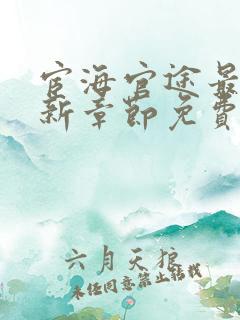 宦海官途最
新章節免費
六月天狼
未经同意禁止转载